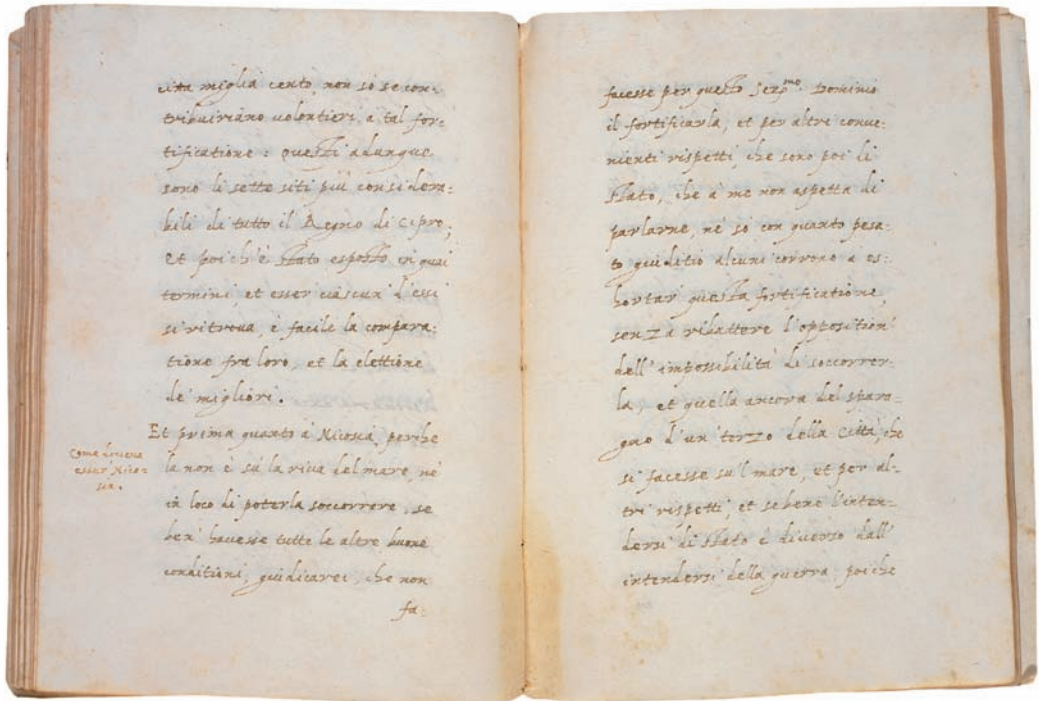 citta miglia cento, non sò se con:
tribuiriano volontieri à tal for:
tificatione: questi adunque
sono li sette siti più considera:
bili da tutto il Regno di Cipro;
et poi ch'è stato esposto in quai
termini, et esser ciascun d'essi
si ritrova, è facile la compara:
tione fra loro, et la elettione
de migliori.
Et prima quanto à Nicosia, perche
Come doveva
esser Nico:
sia.
la non è sù la riva del mare, nè
in loco di poterla soccorrere, se
ben' havesse tutte le altre buone
conditioni, giudicarei, che non
fa:
facesse per questo Ser.mo Dominio
il fortificarla, et per altre conve:
nienti rispetti, che sono poi di
stato, che à me non aspetta di
parlarne, nè sò con quanto pesa:
to giuditio alcuni corrono a es:
hortar questa fortificatione,
senza ribattere l'oppositioni
dell'impossibilità di soccorrer:
la, et quella ancora del sparo:
gno d'un terzo della Città, che
si facesse su'l mare, et per al:
tri rispetti, et sebene l'inten:
dersi di stato è diverso dall'
intendersi della guerra, poiche